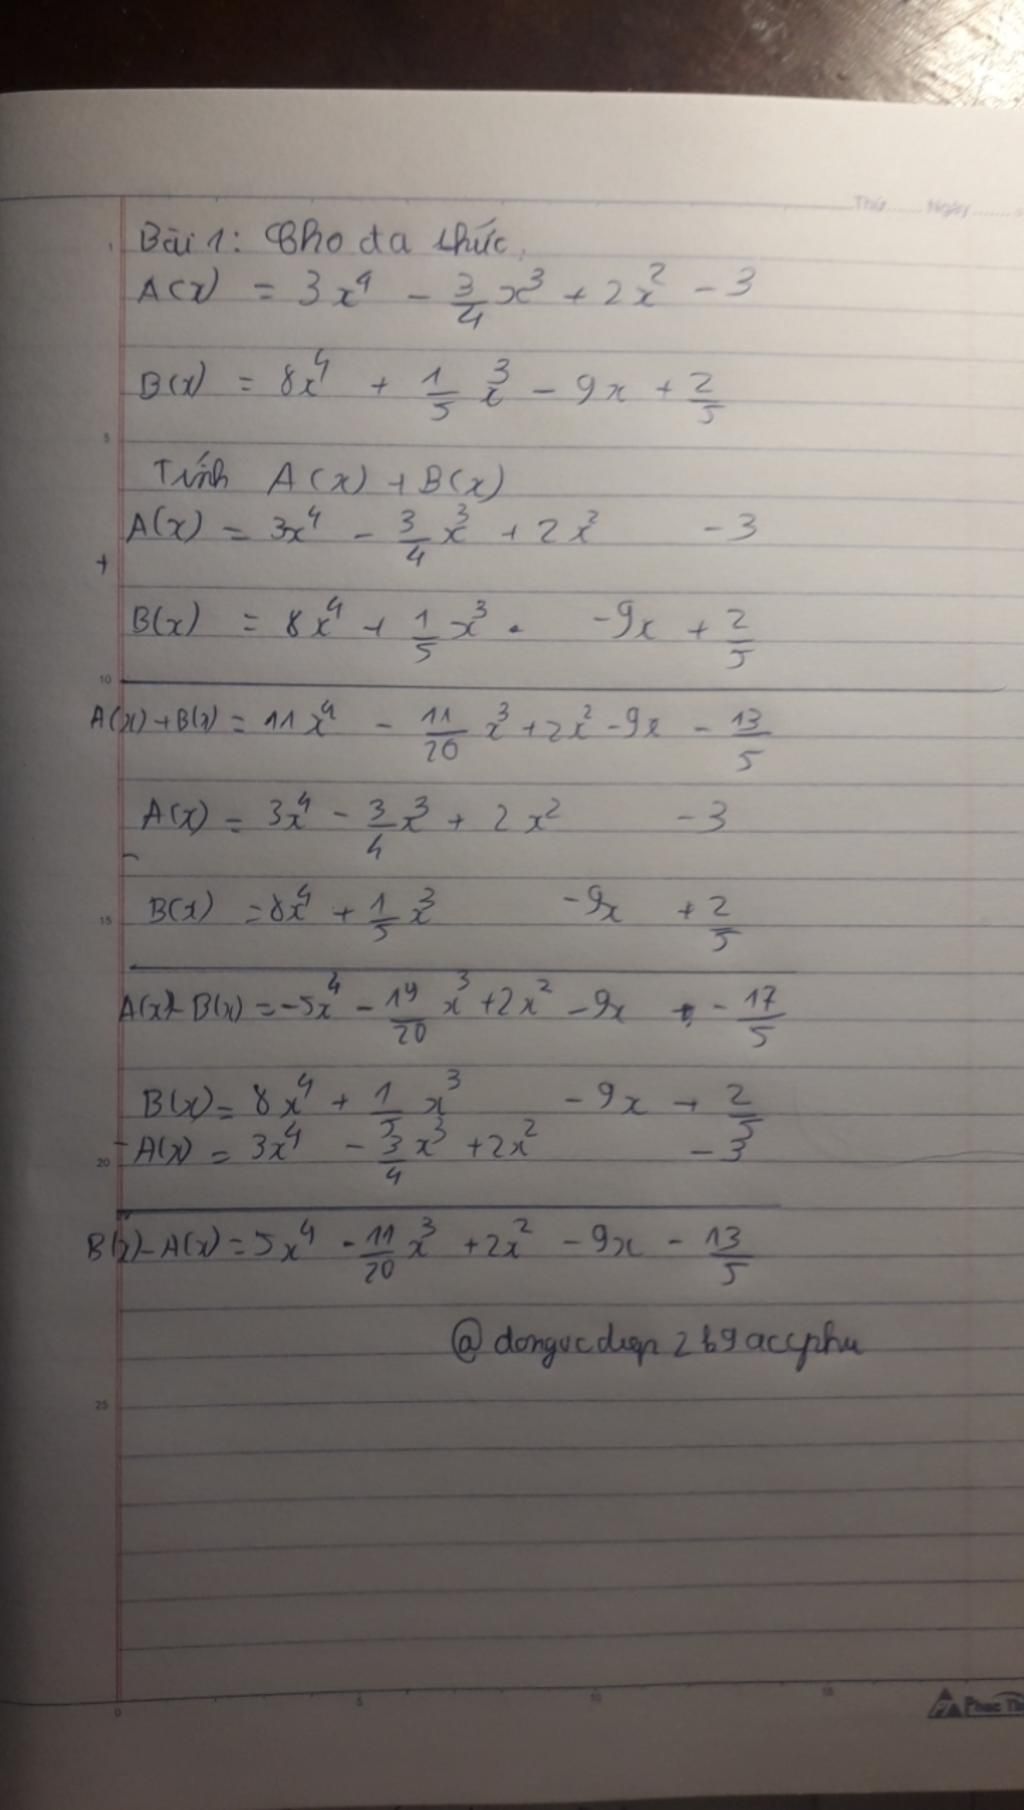 Thứ ...... Ngày ......
Bài 1: Cho đa thức
A(x) = 3x⁴ - 3/4 x³ + 2x² - 3
B(x) = 8x⁴ + 1/5 x³ - 9x + 2/5
5
Tính A(x) + B(x)
A(x) = 3x⁴ - 3/4 x³ + 2x² - 3
+
B(x) = 8x⁴ + 1/5 x³ - 9x + 2/5
10
A(x) + B(x) = 11x⁴ - 11/20 x³ + 2x² - 9x - 13/5
A(x) = 3x⁴ - 3/4 x³ + 2x² - 3
-
B(x) = 8x⁴ + 1/5 x³ - 9x + 2/5
15
A(x) - B(x) = -5x⁴ - 19/20 x³ + 2x² - 9x - 17/5
B(x) = 8x⁴ + 1/5 x³ - 9x + 2/5
- A(x) = 3x⁴ - 3/4 x³ + 2x² - 3
20
B(x) - A(x) = 5x⁴ - 11/20 x³ + 2x² - 9x - 13/5
25
0 5 10 15